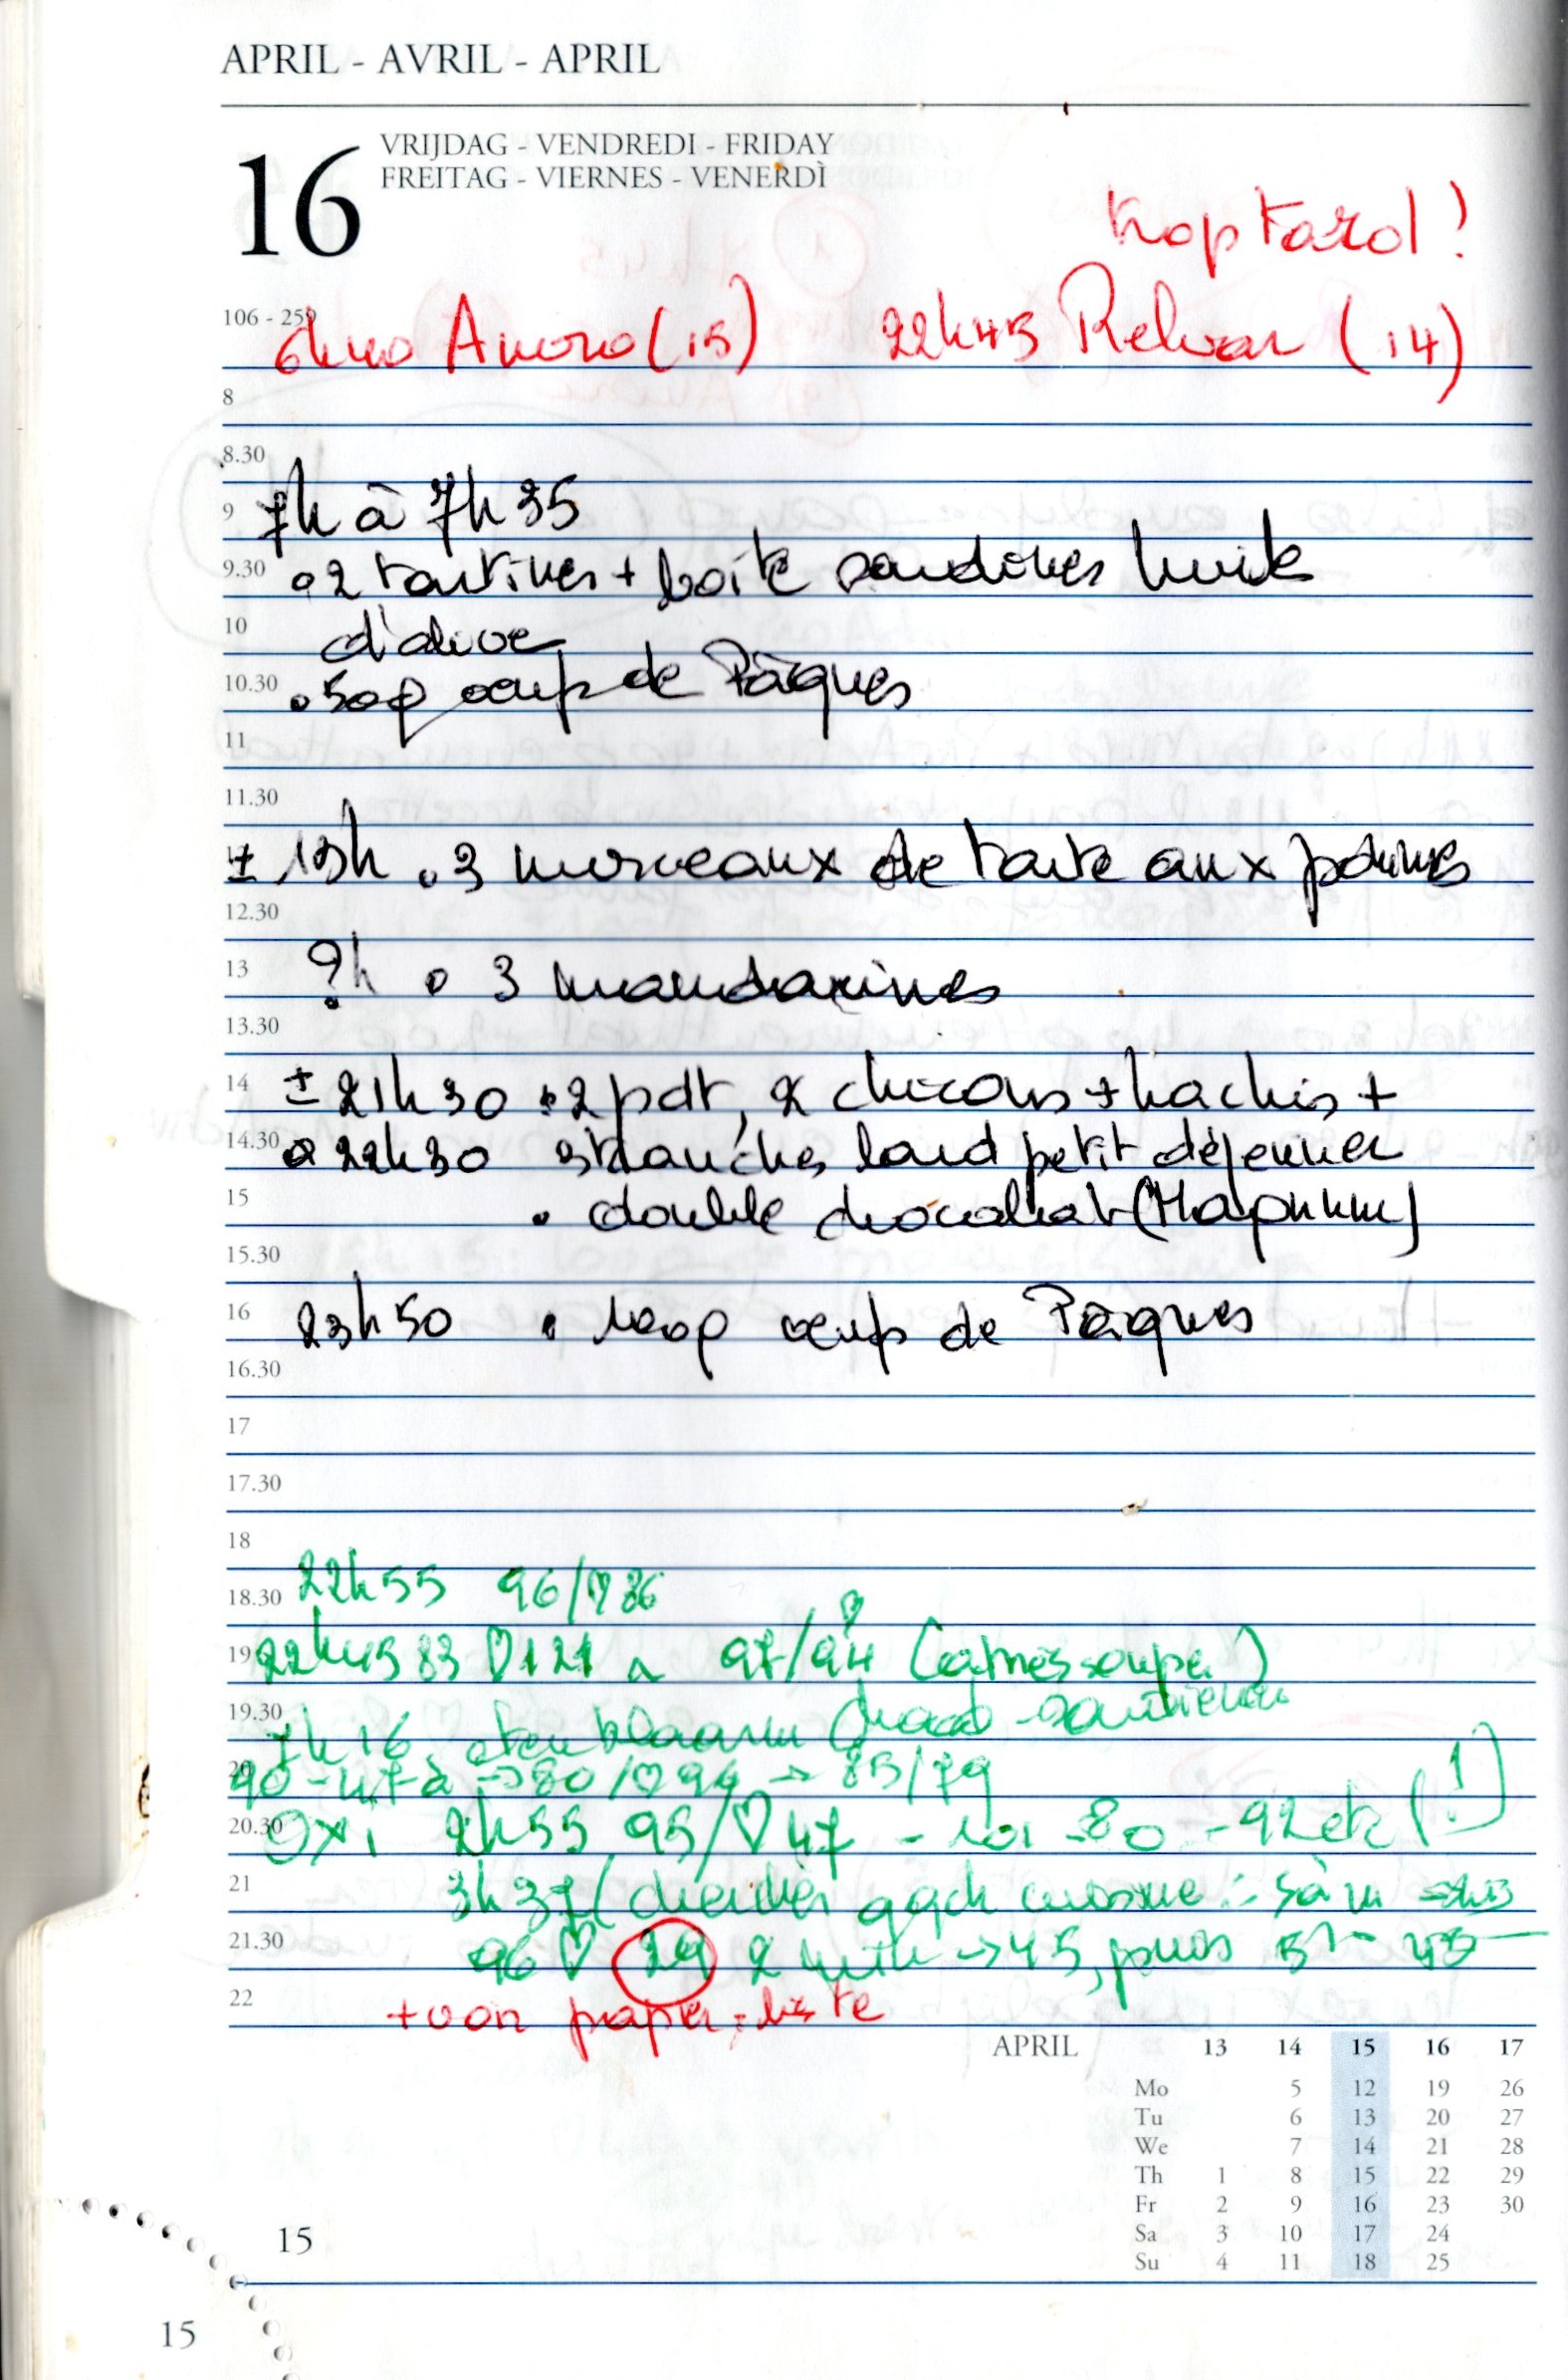 APRIL - AVRIL - APRIL
16
VRIJDAG - VENDREDI - FRIDAY
FREITAG - VIERNES - VENERDÌ
trop tard !
106 - 259
6h40 Anoro (15) 22h45 Relvar (14)
8
8.30
7h à 7h35
9
9.30 2 tartines + boîte sardines huile
10 d'olive
10.30 . 50g oeufs de Pâques
11
11.30
± 13h . 3 morceaux de tarte aux pommes
12.30
13 ?h . 3 mandarines
13.30
14 ± 21h30 . 2 pdt, 2 chicons + hachis +
14.30 à 22h30 3 tranches lard petit déjeuner
15 . double chocolat
15.30
16 23h50 . 100g oeufs de Pâques
16.30
17
17.30
18
18.30 22h55 96/♡86
19 22h45 83 ♡121 97/94 (après souper)
19.30 7h16
20 90-47 à → 80/♡94 → 85/79
20.30 Oxi 2h55 95/♡47 - 101 - 80 - 92 etc (!)
21 3h37 (chercher
21.30 96 ♡ 29 → 45, puis
22 + voir papier
APRIL 13 14 15 16 17
Mo 5 12 19 26
Tu 6 13 20 27
We 7 14 21 28
Th 1 8 15 22 29
Fr 2 9 16 23 30
Sa 3 10 17 24
Su 4 11 18 25
15
15